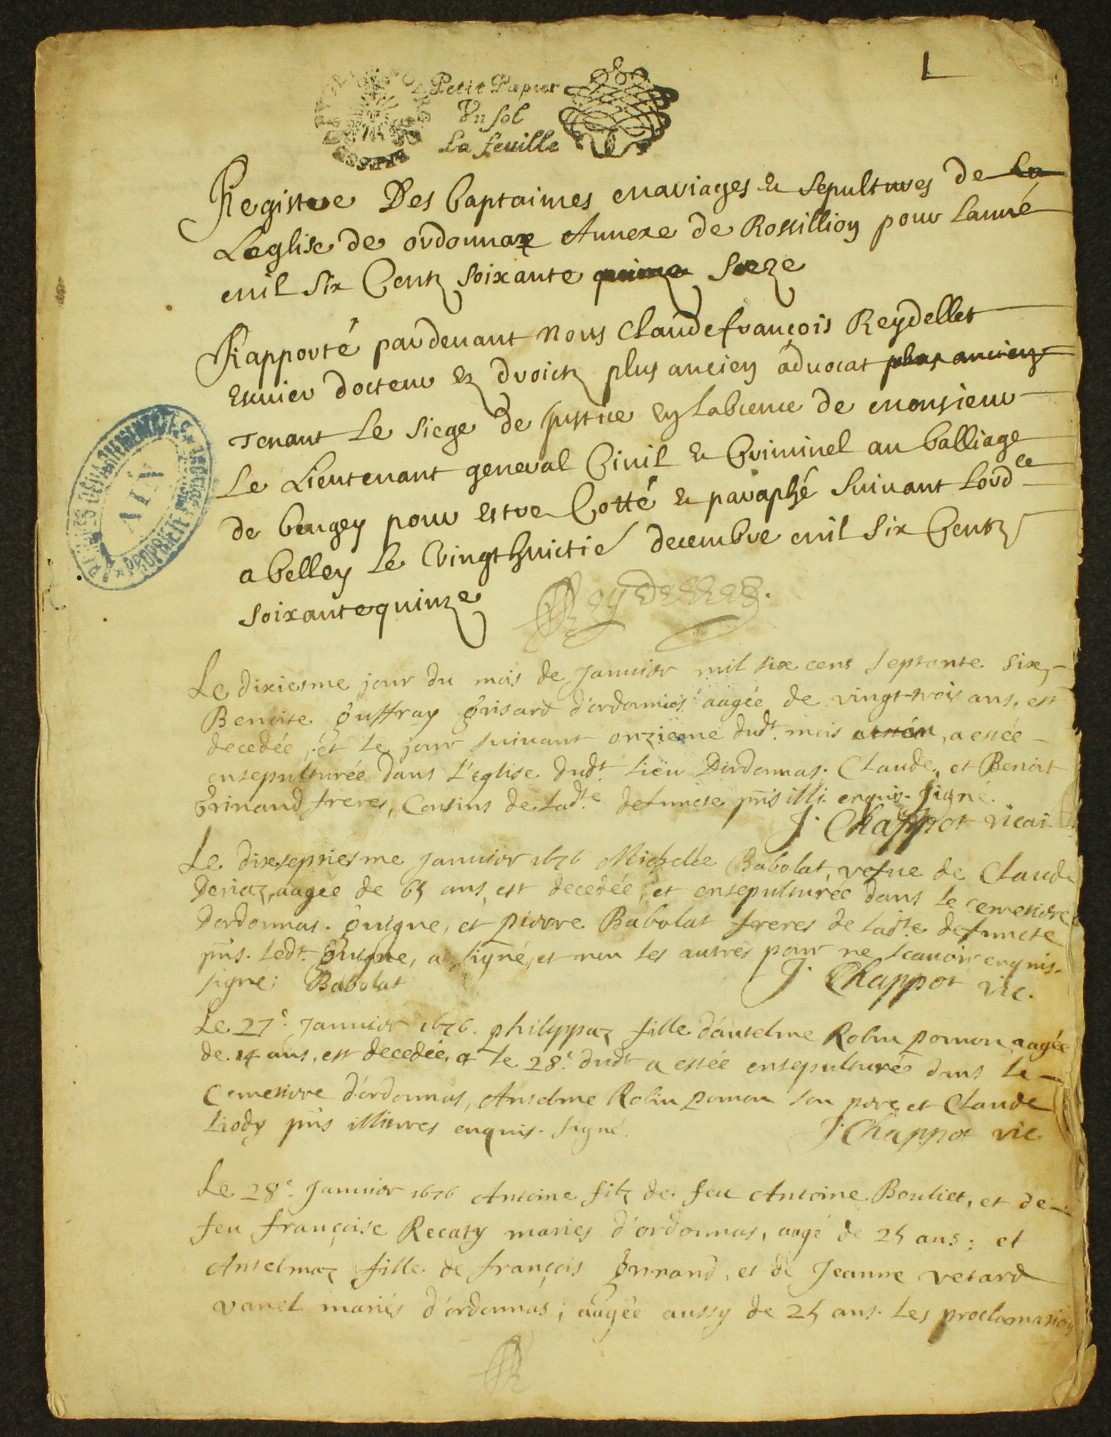 1
Petit Papier
Un sol
La feuille
Registre Des baptaimes mariages & sepultures de La
Leglise de ordonnaz Annexe de Rossillion pour Lanné
mil six Centz soixante quinze seeze
Rapporté pardeuant nous Claudefrancois Reydellet
Escuier docteur ez droictz plus ancien aduocat plus ancien
Tenant Le siege de Justice en Labsence de monsieur
Le Lieutenant general Ciuil & Criminel au balliage
de bugey pour estre Cotté & paraphé suiuant Lord.ce
a belley Le vingthuictie decembre mil six Centz
soixantequinze Reydellet
ARCHIVES DÉPARTEMENTALES
AIN
PROPRIÉTÉ PUBLIQUE
Le dixiesme jour du mois de januier mil six cens septante six,
Benoite Guffray Grisard d'ordonnas aagée de vingt-trois ans, est
decedée, et le jour suiuant onzieme dudt. mois a estée
ensepulturée dans l'Eglise dudt. lieu Dordonnas. Claude, et Benoit
Grinand freres, Cousins de ladte. defuncte pns illi. enquis. signe.
J. Chappot vicai.
Le dixseptiesme januier 1676 Michelle Babolat, vefue de Claude
Deriaz, aagee de 65 ans, est decedée, et ensepulturée dans le cemetiere
dordonnas. Guigne, et pierre Babolat freres de ladte. defuncte
pns. ledt. Guigne, a signé, et non les autres pour ne scauoir enquis.
signe: Babolat J. Chappot vic.
Le 27e. januier 1676. philyppaz fille d'anselme Robin pomon, aagée
de 14 ans, est decedée, & le 28e. dudt a estée ensepulturée dans le
Cemetiere d'ordonnas, Anselme Robin pomon son pere, et Claude
Liody pns illitires enquis. signé. J. Chappot vic
Le 28e. januier 1676 Antoine filz de feu Antoine Bouliet, et de
feu françoise Recaty mariés d'ordonnas, aagé de 25 ans; et
Anselmaz fille de françois Grinand, et de Jeanne vetard
vanel mariés d'ordonnas; aagée aussy de 25 ans. les proclamation